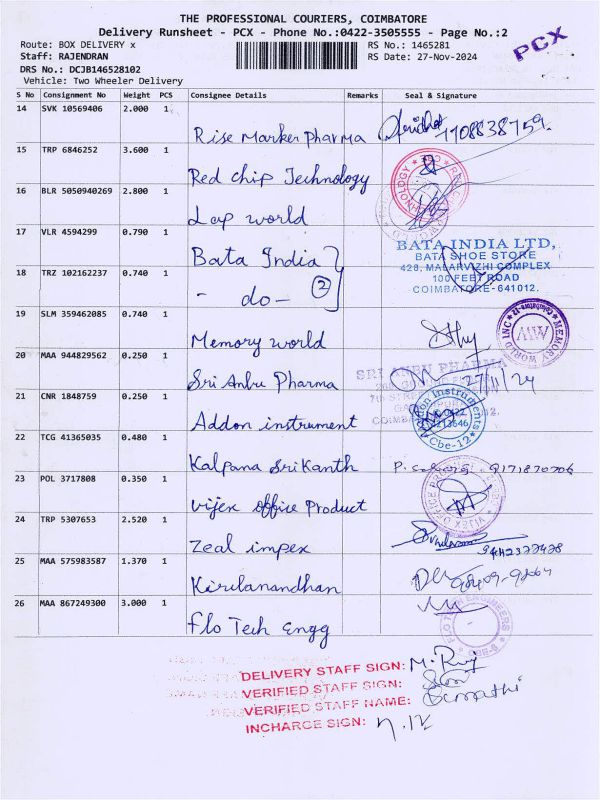 THE PROFESSIONAL COURIERS, COIMBATORE
Delivery Runsheet - PCX - Phone No.:0422-3505555 - Page No.:2
Route: BOX DELIVERY x RS No.: 1465281
Staff: RAJENDRAN RS Date: 27-Nov-2024
PCX
DRS No.: DCJB146528102
Vehicle: Two Wheeler Delivery
S No Consignment No Weight PCS Consignee Details Remarks Seal & Signature
14 SVK 10569406 2.000 1
Rise Marker Pharma
15 TRP 6846252 3.600 1
Red chip Technology
16 BLR 5050940269 2.800 1
Lap world
17 VLR 4594299 0.790 1
Bata India
BATA INDIA LTD,
BATA SHOE STORE
428, MALARVIZHI COMPLEX
100 FEET ROAD
COIMBATORE-641012.
18 TRZ 102162237 0.740 1
- do - 2
19 SLM 359462085 0.740 1
Memory world
MEMORY WORLD INC Coimbatore-12
MW
20 MAA 944829562 0.250 1
Sri Anbu Pharma
SRI ANBU PHARMA
27/11/24
21 CNR 1848759 0.250 1
Addon instrument
Addon Instruments
Cbe-12
22 TCG 41365035 0.480 1
Kalpana Srikanth
23 POL 3717808 0.350 1
vijex office Product
24 TRP 5307653 2.520 1
Zeal impex
25 MAA 575983587 1.370 1
Kirilanandhan
26 MAA 867249300 3.000 1
Flo Tech Engg
FLO TECH ENGINEERS
DELIVERY STAFF SIGN:
VERIFIED STAFF SIGN:
VERIFIED STAFF NAME:
INCHARGE SIGN: